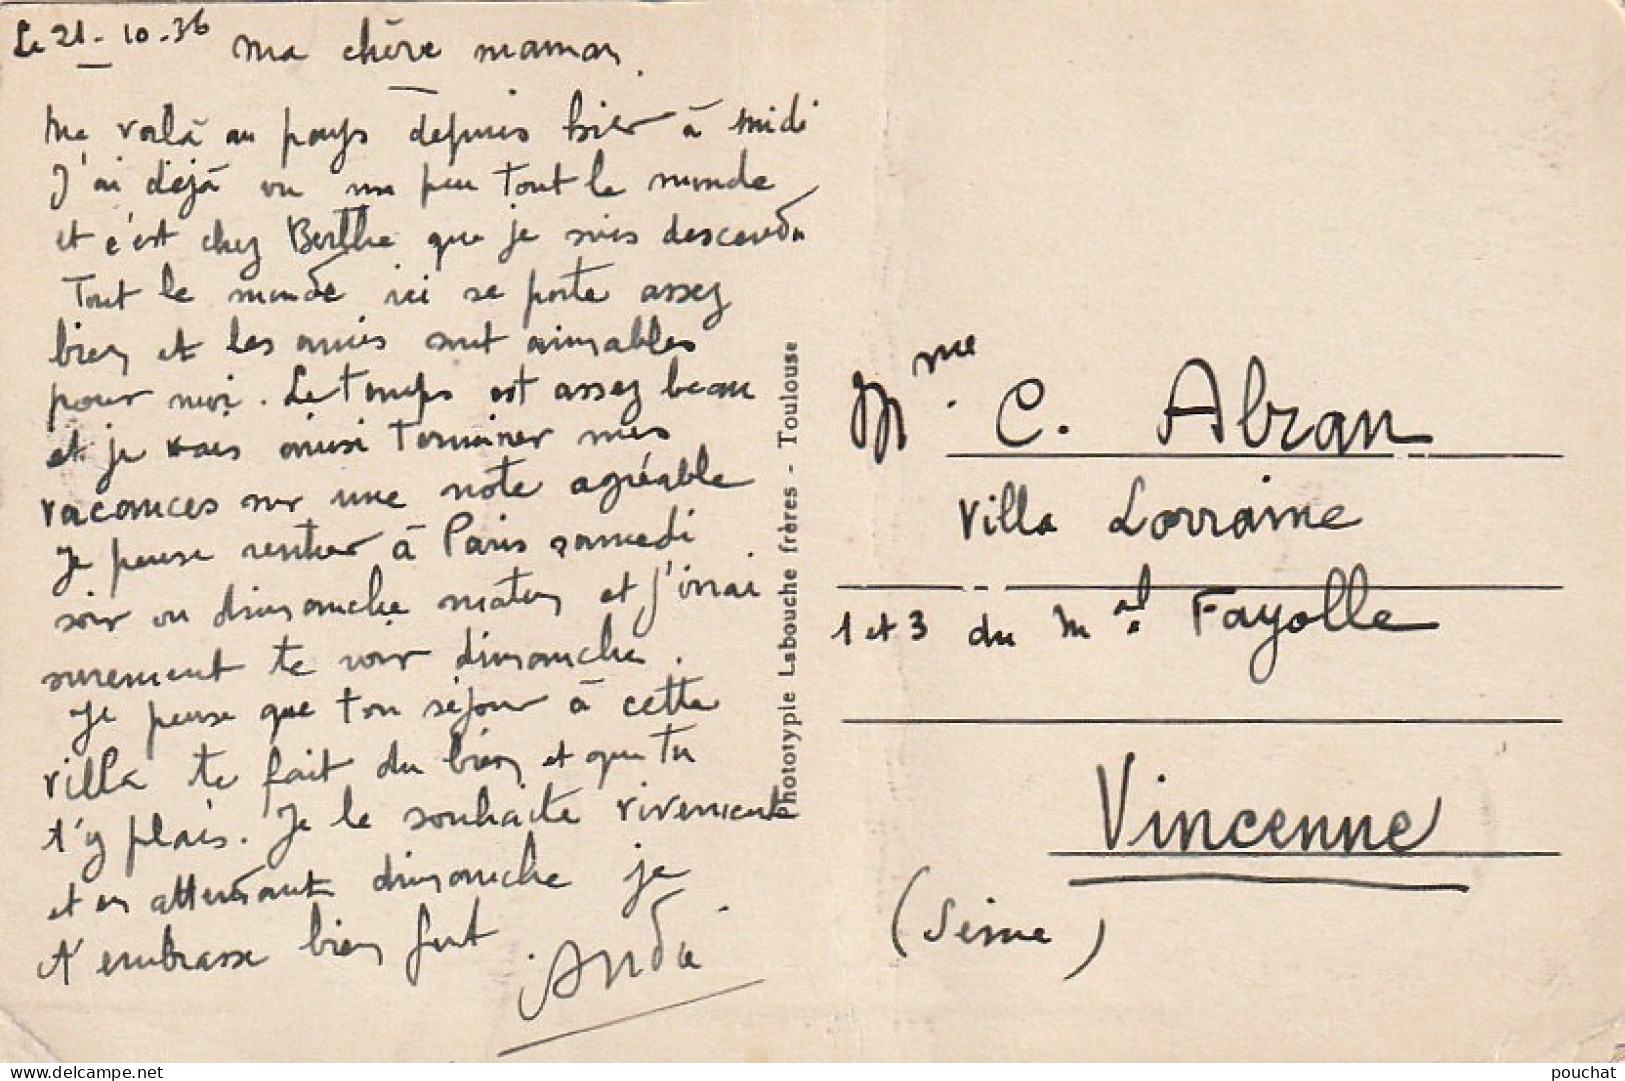 Le 21-10-36
Ma chère maman.
Me voilà au pays depuis hier à midi
J'ai déjà vu un peu tout le monde
et c'est chez Berthe que je suis descendu
Tout le monde ici se porte assez
bien et les amis sont aimables
pour moi. Le temps est assez beau
et je vais ainsi terminer mes
vacances sur une note agréable
Je pense rentrer à Paris samedi
soir ou dimanche matin et j'irai
surement te voir dimanche.
Je pense que ton séjour à cette
villa te fait du bien et que tu
t'y plais. Je le souhaite vivement
et en attendant dimanche je
t'embrasse bien fort.
André
Phototypie Labouche frères - Toulouse
Mme. C. Abran
Villa Lorraine
1 et 3 du Mal Fayolle
Vincenne
(Seine)
pouchat
www.delcampe.net